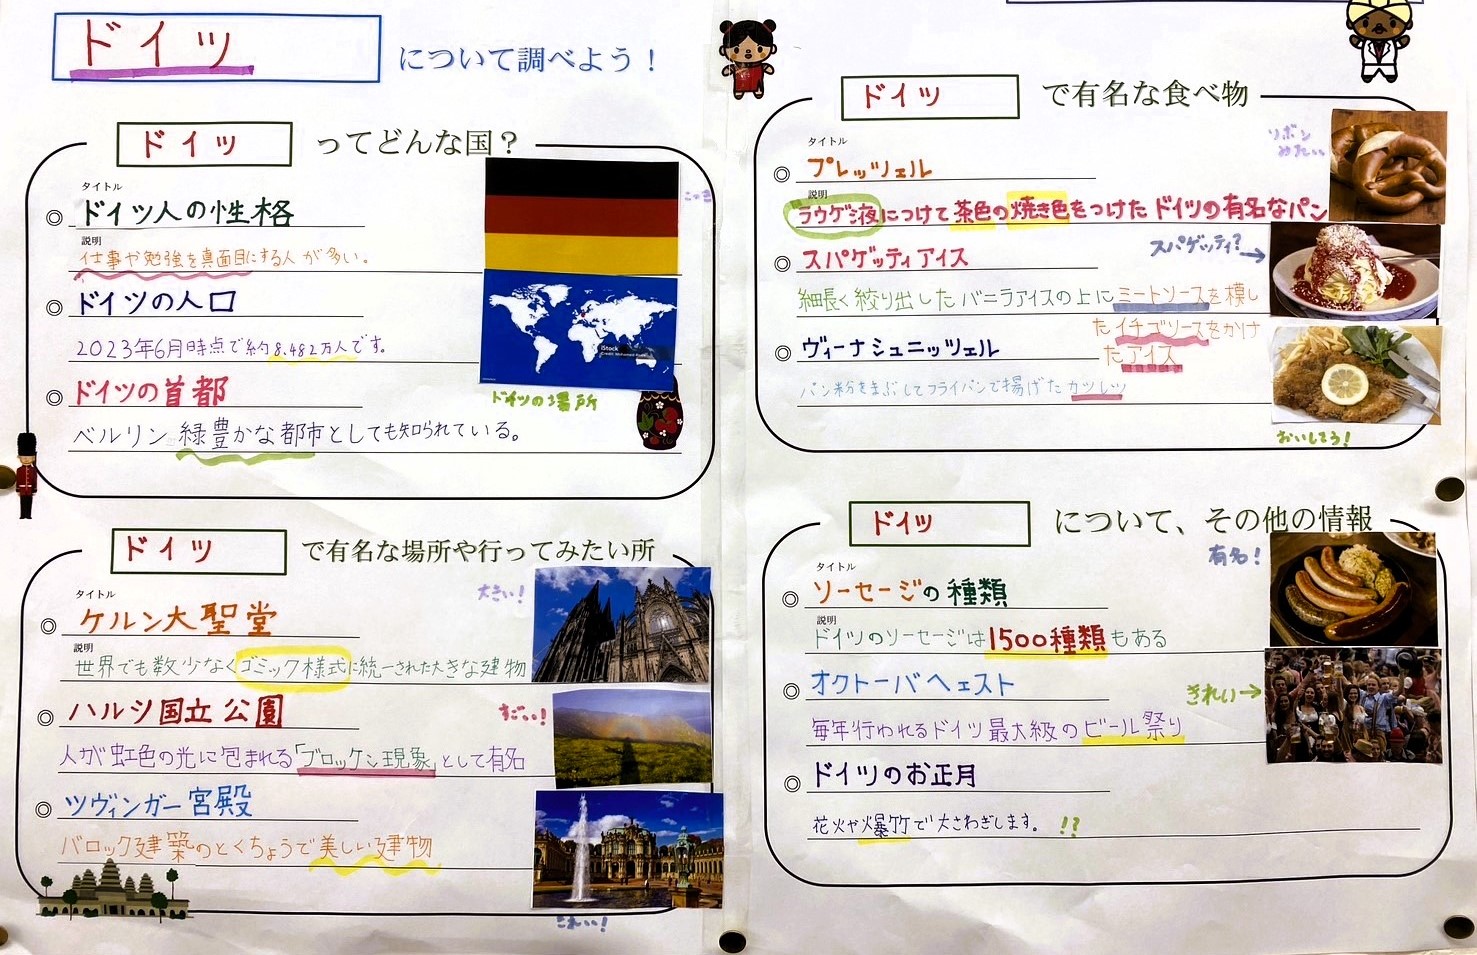 ドイツ について調べよう！
ドイツ ってどんな国？
タイトル
◎ ドイツ人の性格
説明
仕事や勉強を真面目にする人が多い。
◎ ドイツの人口
2023年6月時点で約8.482万人です。
◎ ドイツの首都
ベルリン 緑豊かな都市としても知られている。
こっき
iStock
ドイツの場所
ドイツ で有名な場所や行ってみたい所
タイトル
◎ ケルン大聖堂
大きい！
説明
世界でも数少なくゴミック様式に統一された大きな建物
◎ ハルツ国立公園
すごい！
人が虹色の光に包まれる「ブロッケン現象」として有名
◎ ツヴィンガー宮殿
バロック建築のとくちょうで美しい建物
きれい！
ドイツ で有名な食べ物
タイトル
◎ プレッツェル
リボン
みたい
説明
ラウゲン液につけて茶色の焼き色をつけたドイツの有名なパン
◎ スパゲッティアイス
スパゲッティ？→
細長く絞り出したバニラアイスの上にミートソースを模し
たイチゴソースをかけ
たアイス
◎ ヴィーナシュニッツェル
パン粉をまぶしてフライパンで揚げたカツレツ
おいしそう！
ドイツ について、その他の情報
タイトル
有名！
◎ ソーセージの種類
説明
ドイツのソーセージは1500種類もある
◎ オクトーバーフェスト
きれい→
毎年行われるドイツ最大級のビール祭り
◎ ドイツのお正月
花火や爆竹で大さわぎします。！？